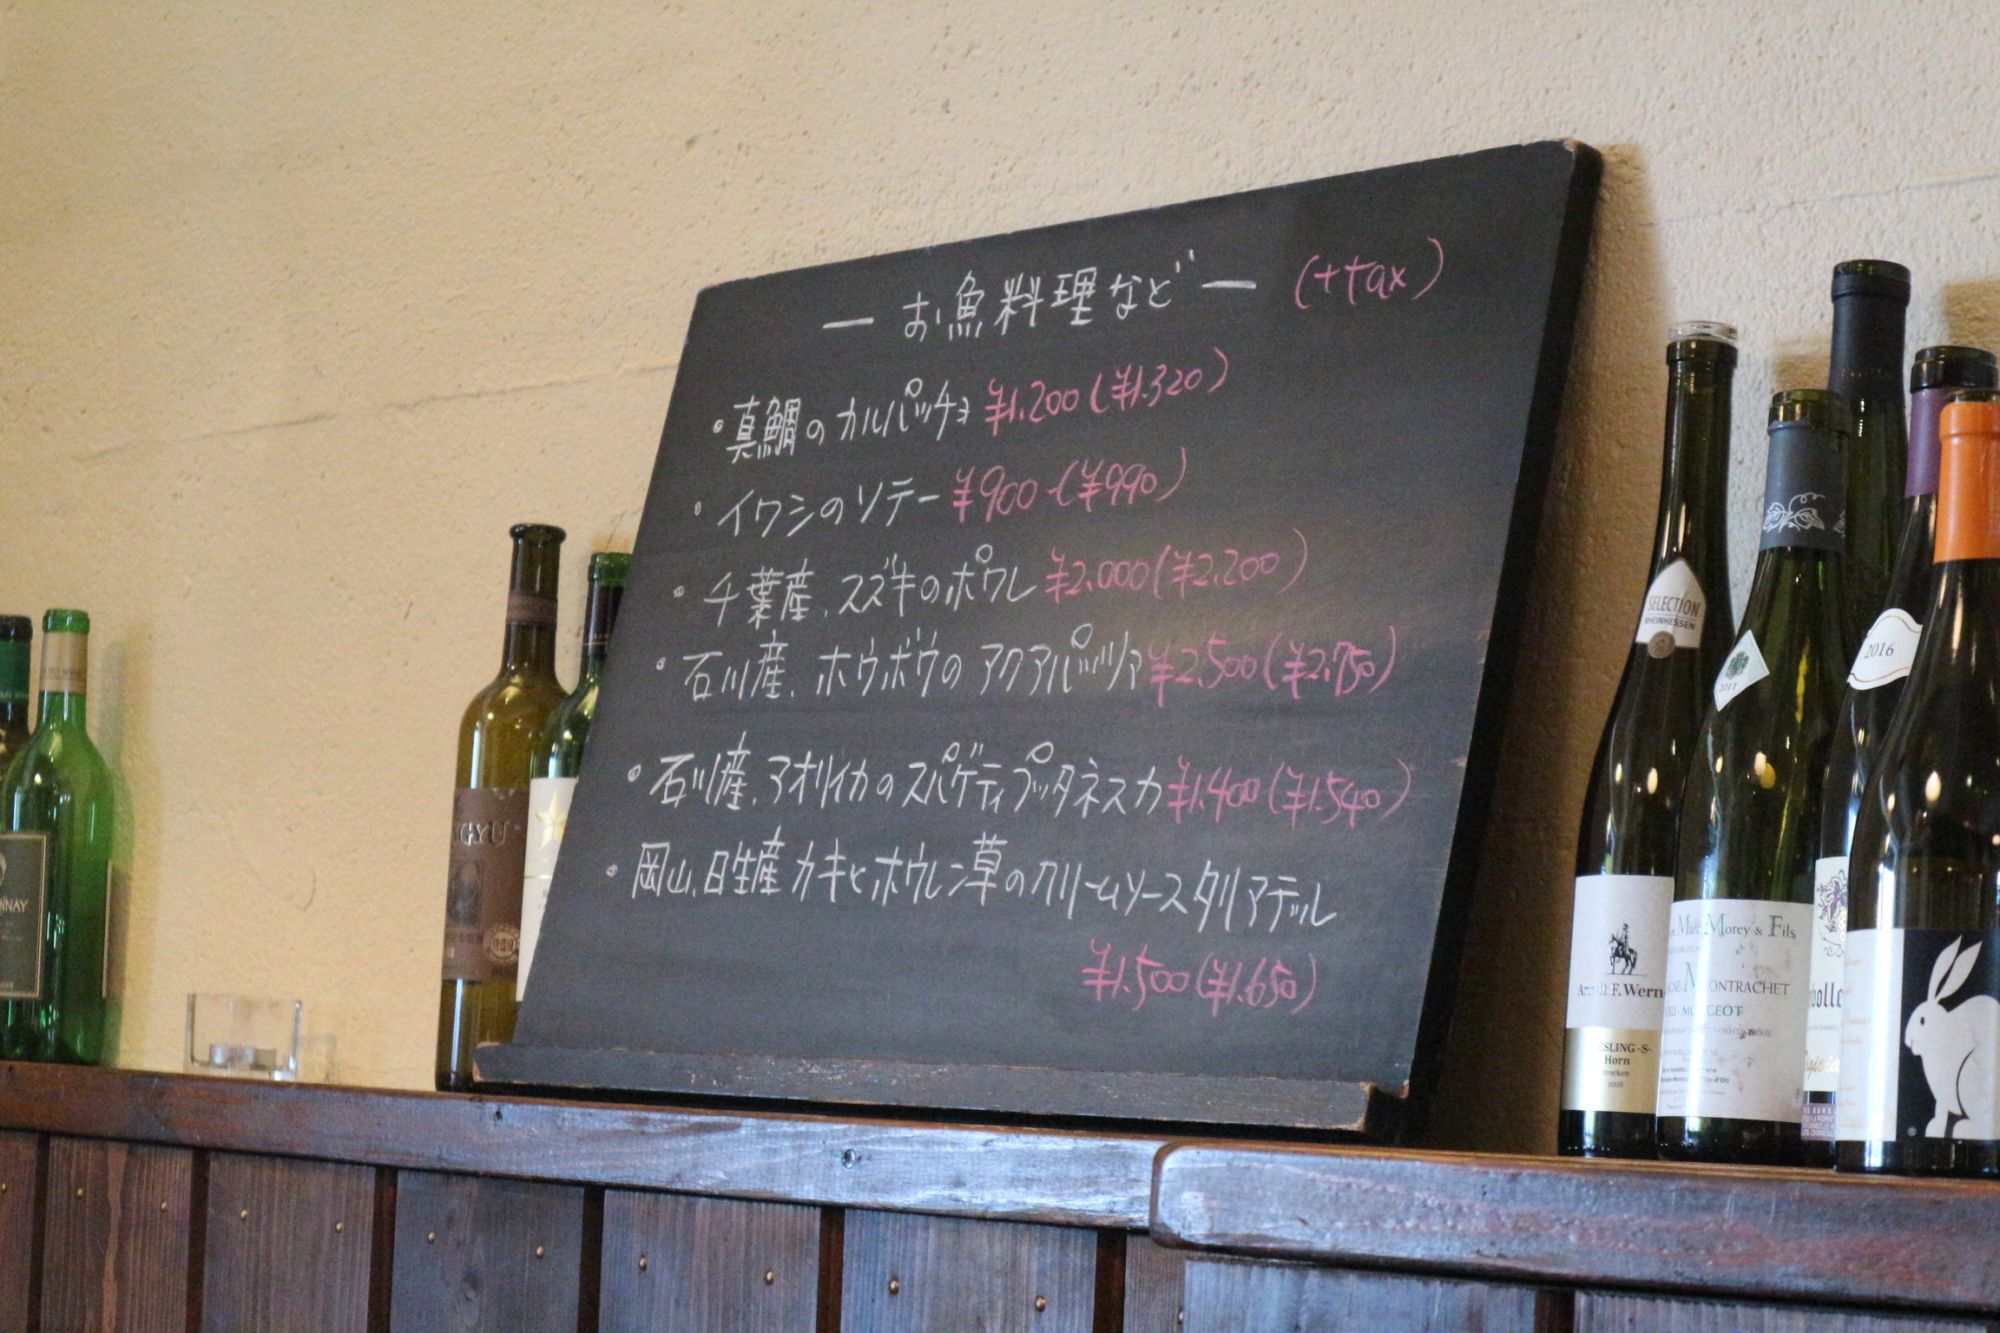 ー お魚料理など ー (+tax)
・真鯛のカルパッチョ ¥1.200(¥1.320)
・イワシのソテー ¥900-(¥990)
・千葉産、スズキのポワレ ¥2.000(¥2.200)
・石川産、ホウボウのアクアパッツァ ¥2.500(¥2.750)
・石川産、アオリイカのスパゲティプッタネスカ ¥1.400(¥1.540)
・岡山、日生産 カキとホウレン草のクリームソースタリアテッレ
¥1.500(¥1.650)
NGYU
NNAY
SELECTION
RHEINHESSEN
2011
2016
F. Wern
SLING -S-
Horn
trocken
Marc Morey & Fils
MONTRACHET
MORGEOT
bolle